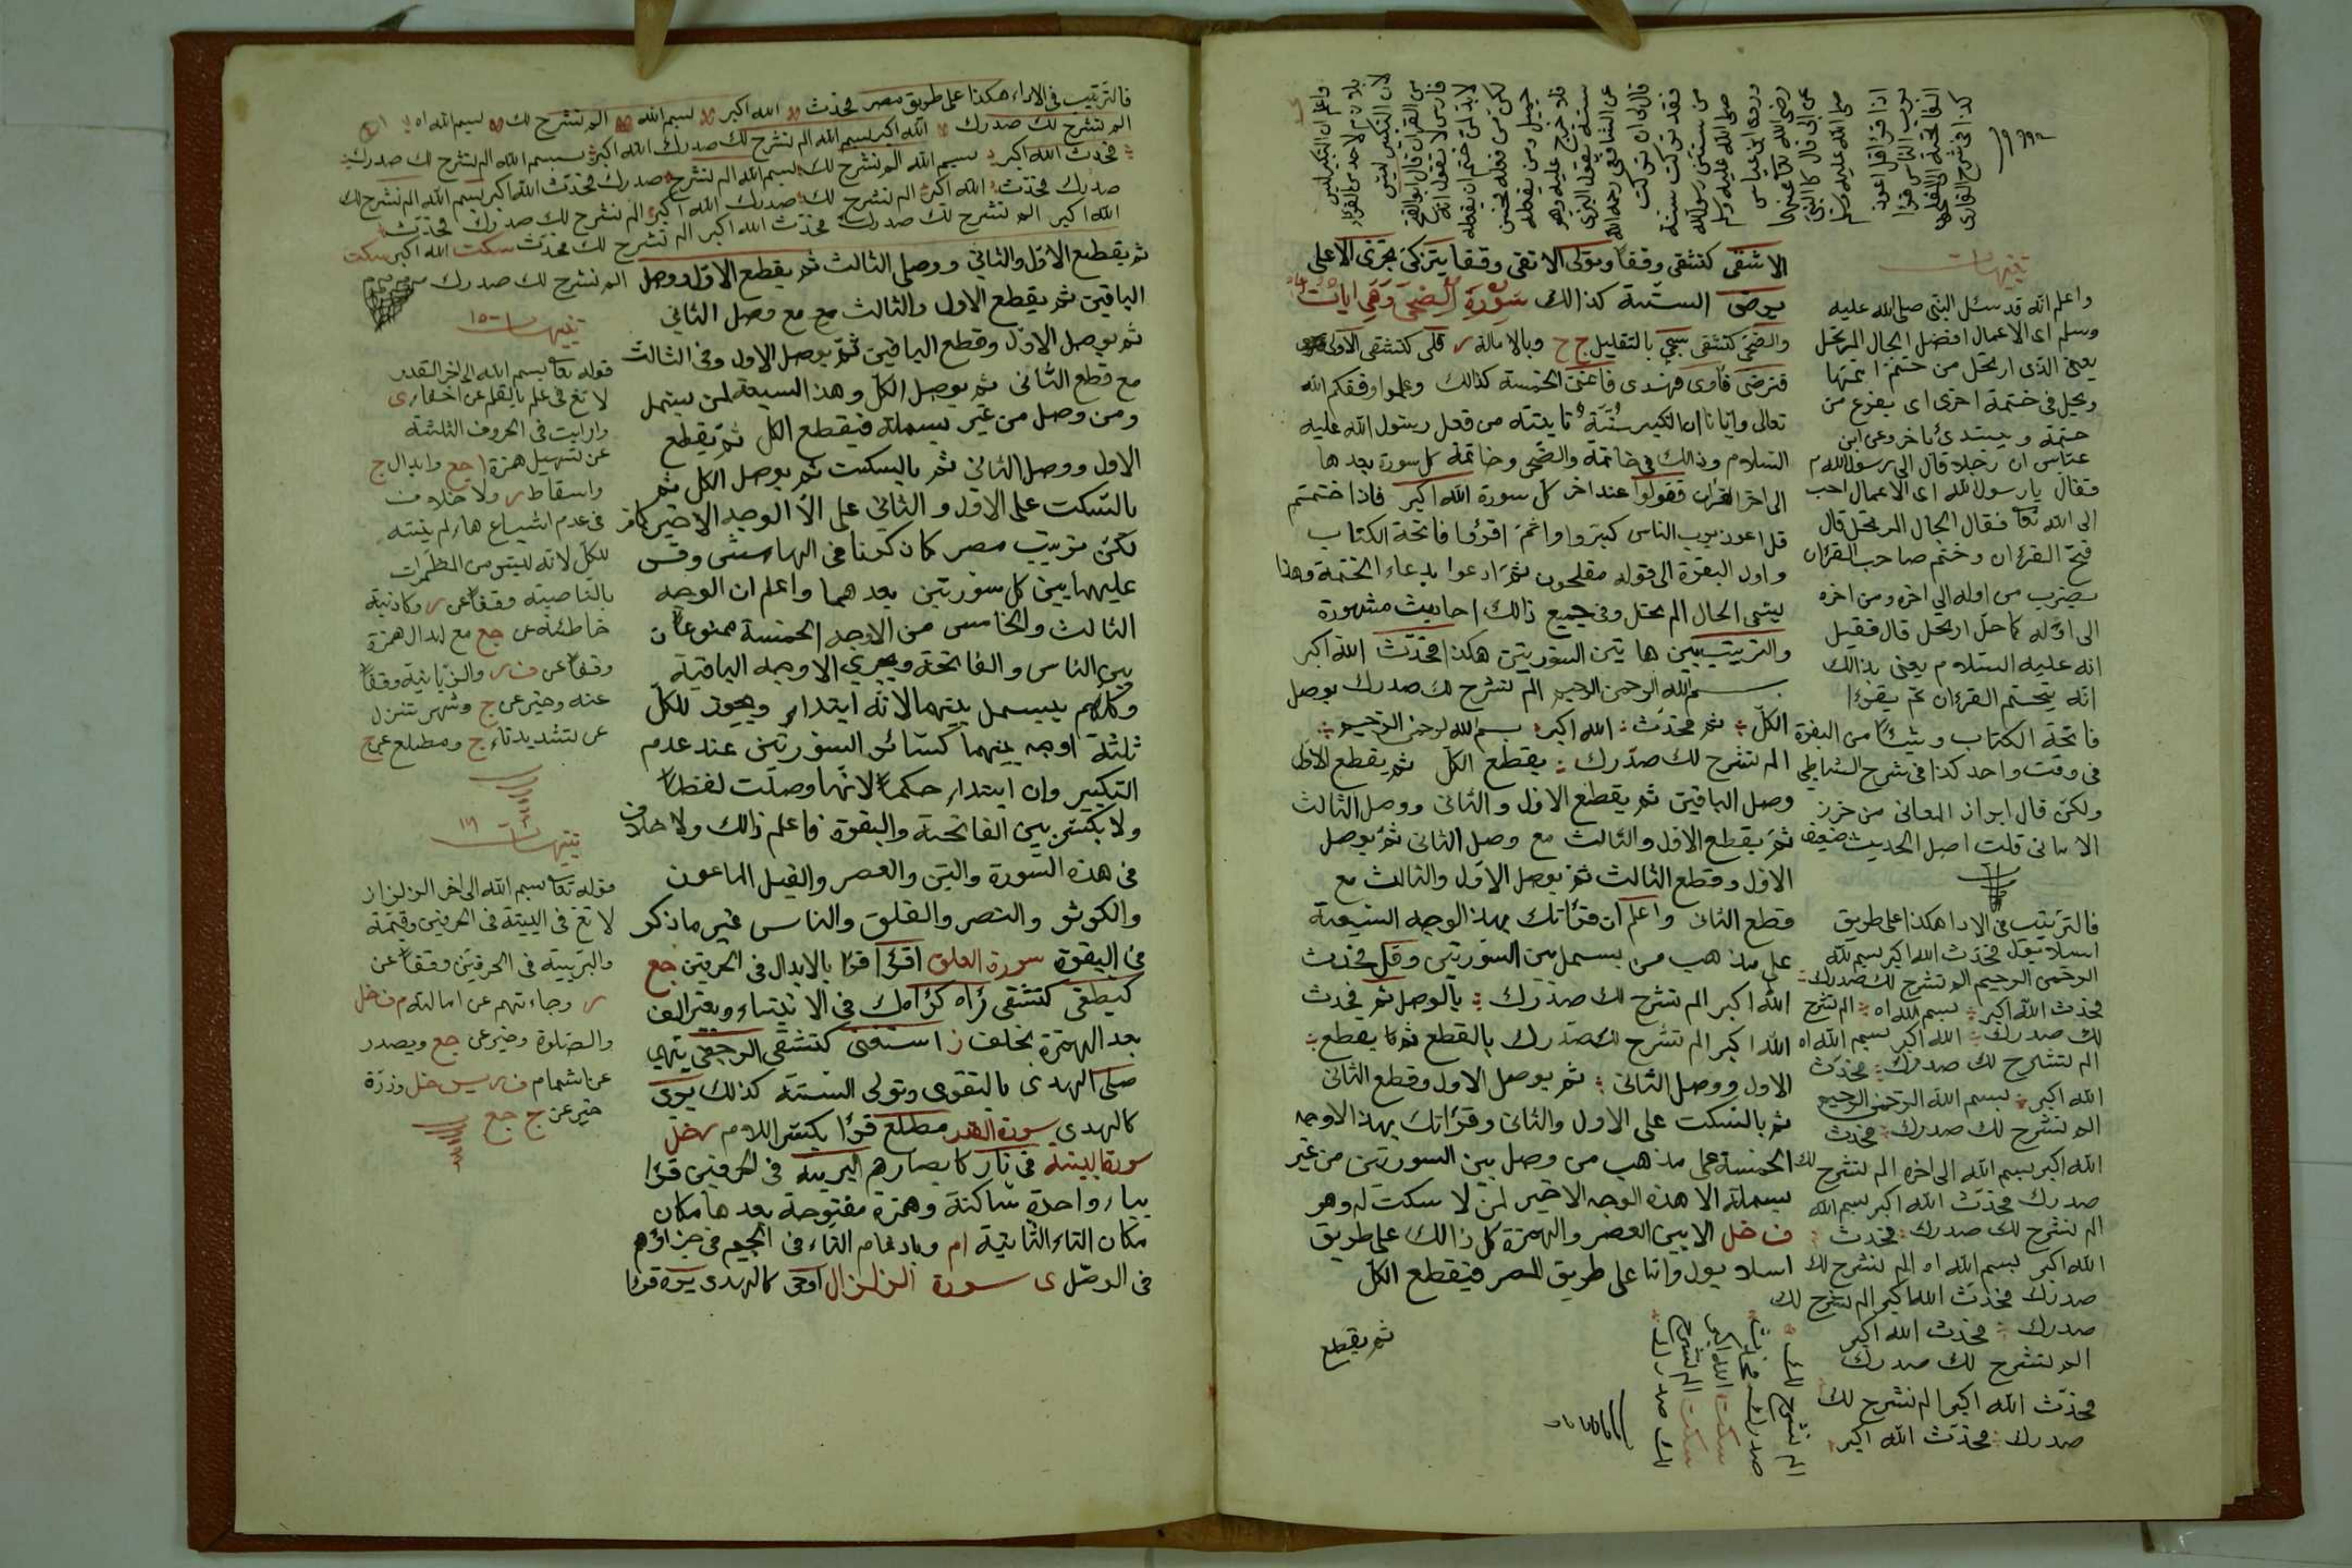 الاشقى كتشقى وقفا وتولى الاتقى وقفا يتزكى تجزى الاعلى
يرضى الستة كذالك سورة الضحى وهى ايات
والضحى كتشقى سجى بالتقليل ج ح وبالامالة ر قلى كتشقى الاولى
فترضى فآوى فهدى فاغنى الخمسة كذالك وعلموا وفقكم الله
تعالى وايانا ان التكبير سنة ثابتة من فعل رسول الله عليه
السلام وذالك فى خاتمة والضحى وخاتمة كل سورة بعدها
الى اخر القران فقولوا عند اخر كل سورة الله اكبر فاذا ختمتم
قل اعوذ برب الناس كبروا واثم اقرؤا فاتحة الكتاب
واول البقرة الى قوله مفلحون ثم ادعوا بدعاء الختمة وهذا
يسمى الحال المرتحل وفى جميع ذالك احاديث مشهورة
والترتيب بين هاتين السورتين هكذا فحدث الله اكبر
بسم الله الرحمن الرحيم الم نشرح لك صدرك بوصل
الكل ثم فحدث الله اكبر بسم الله الرحمن الرحيم
الم نشرح لك صدرك يقطع الكل ثم يقطع الاول
وصل الباقين ثم يقطع الاول والثانى ووصل الثالث
ثم يقطع الاول والثالث مع وصل الثانى ثم يوصل
الاول وقطع الثالث ثم يوصل الاول والثالث مع
قطع الثان واعلم ان قراتك بهذا الوجه السبعة
على مذهب من بسمل بين السورتين وقل فحدث
الله اكبر الم نشرح لك صدرك بالوصل ثم فحدث
الله اكبر الم نشرح لك صدرك بالقطع ثم يقطع
الاول ووصل الثانى ثم يوصل الاول وقطع الثانى
ثم بالسكت على الاول والثانى وقراتك بهذا الاوجه
الخمسة على مذهب من وصل بين السورتين من غير
بسملة الا هذه الوجه الاخير لمن لا سكت له وهو
ف خل الا بين العصر والهمزة كل ذالك على طريق
اسلامبول واما على طريق المصر فيقطع الكل
ثم يقطع
تنبيهات
واعلم انه قد سئل النبى صلى الله عليه
وسلم اى الاعمال افضل الحال المرتحل
يعنى الذى ارتحل من ختمة اتمها
ويحل فى ختمة اخرى اى يفرغ من
ختمة ويبتدئ باخر وعن ابن
عباس ان رجلا قال الى رسول الله م
فقال يا رسول الله اى الاعمال احب
الى الله تعا فقال الحال المرتحل قال
فتح القرءان وختم صاحب القرءان
يضرب من اوله الى اخره ومن اخره
الى اوله كما حل ارتحل قال فقيل
انه عليه السلام يعنى بذالك
انه يختم القرءان ثم يقرءا
فاتحة الكتاب وشيئا من البقرة
فى وقت واحد كذا فى شرح الشاطى
ولكن قال ابراز المعانى من حرز
الامانى قلت اصل الحديث ضعيف
فالترتيب فى الادا هكذا على طريق
اسلامبول فحدث الله اكبر بسم الله
الرحمن الرحيم الم نشرح لك صدرك
فحدث الله اكبر بسم الله اه الم نشرح
لك صدرك الله اكبر بسم الله اه
الم نشرح لك صدرك فحدث
الله اكبر بسم الله الرحمن الرحيم
الم نشرح لك صدرك فحدث
الله اكبر بسم الله الى اخره الم نشرح لك
صدرك فحدث الله اكبر بسم الله
الم نشرح لك صدرك فحدث
الله اكبر بسم الله اه الم نشرح لك
صدرك فحدث الله اكبر الم نشرح لك
صدرك فحدث الله اكبر
الم نشرح لك صدرك
فحدث الله اكبر الم نشرح لك
صدرك فحدث الله اكبر
الم نشرح لك
صدرك فحدث
سكت الله اكبر
سكت الم نشرح
لك صدرك
واعلم ان التكبير ليس
بلازم لاحد من القراء
لان التكبير ليس
من القران قال ابو الفتح
فارس لا نقول انه
لا بد لمن ختم ان يفعله
لكن من فعله فحسن
جميل ومن لم يفعله
فلا حرج عليه وهو
سنة بقول البزى
عن الشافعى رحمه الله
قال لى ان تركت
فقد تركت سنة
من سنن رسول الله
صلى الله عليه وسلم
وروى ابن عباس
رضى الله تعا عنهما
عن ابى قال كا النبى
صلى الله عليه وسلم
اذا قرا قل اعوذ
برب الناس قرا
الفاتحة الى المفلحون
كذا فى شرح القارى
فالترتيب فى الاداء هكذا على طريق مصر فحدث الله اكبر بسم الله الم نشرح لك بسم الله اه
الم نشرح لك صدرك الله اكبر بسم الله الم نشرح لك صدرك الله اكبر بسم الله الم نشرح لك صدرك
فحدث الله اكبر بسم الله الم نشرح لك بسم الله الم نشرح صدرك فحدث الله اكبر بسم الله الم نشرح لك
صدرك فحدث الله اكبر الم نشرح لك صدرك الله اكبر الم نشرح لك صدرك فحدث
الله اكبر الم نشرح لك صدرك فحدث الله اكبر الم نشرح لك فحدث سكت الله اكبر سكت
الم نشرح لك صدرك
ثم يقطع الاول والثانى ووصل الثالث ثم يقطع الاول ووصل
الباقين ثم يقطع الاول والثالث مع مع وصل الثانى
ثم يوصل الاول وقطع الباقين ثم يوصل الاول وفى الثالث
مع قطع الثانى ثم يوصل الكل وهذا السبعة لمن بسمل
ومن وصل من غير بسملة فيقطع الكل ثم يقطع
الاول ووصل الثانى ثم بالسكت ثم يوصل الكل ثم
بالسكت على الاول والثانى على الا الوجه الاخير كما مر
لكن ترتيب مصر كما ذكرنا فى الهامش وقس
عليهما بين كل سورتين بعدهما واعلم ان الوجه
الثالث والخامس من الاوجه الخمسة ممنوعان
بين الناس والفاتحة ويجرى الاوجه الباقية
وكلهم يبسمل بينهما لانه ابتداء ويجوز للكل
ثلثة اوجه بينهما كسائر السورتين عند عدم
التكبير وان ابتداء حكما لانها وصلت لفظا
ولا يكبر بين الفاتحة والبقرة فاعلم ذالك ولا خلاف
فى هذه السورة والتين والعصر والفيل الماعون
والكوثر والنصر والفلق والناس غير ما ذكر
فى البقرة سورة العلق اقرا قرا بالابدال فى الحرفين جع
ليطغى كتشقى راه كراءك فى الانبياء وبقصر الف
بعد الهمزة بخلف ز استغنى كتشقى الرجعى ينهى
صلى الهدى بالتقوى وتولى الستة كذلك يرى
كالهدى سورة القدر مطلع قرا بكسر اللام ر خل
سورة البينة فى نار كابصارهم البرية فى الحرفين قرا
بياء واحدة ساكنة وهمزة مفتوحة بعدها مكان
مكان التاء الثانية ام وبادغام التاء فى الجيم فى جزاؤهم
فى الوصل ى سورة الزلزال اوحى كالهدى يره قرا
تنبيهات ١٥
قوله تعا بسم الله الى اخر القدر
لا تغ فى علم بالقلم عن اخفا رى
وارايت فى الحروف الثلثة
عن تسهيل همزة ا جع وابدال ج
واسقاط ر ولا خلاف
فى عدم اشباع هاء لم ينته
للكل لانه ليس من المضمرات
بالناصية وقفا عن ر وكاذبة
خاطئة عن جع مع ابدال همزة
وقفا عن ف ر والزبانية وقفا
عنه وخير عن ج وشهر تنزل
عن تشديد تاء ج ومطلع عن ج
تنبيهات ١٦
قوله تعا بسم الله الى اخر الزلزال
لا تغ فى البينة فى الحرفين وقيمة
والبرية فى الحرفين وقفا عن
ر وجاءتهم عن امالته م ف خل
والصلوة وخير عن جع ويصدر
عن اشمام ف ر س خل وذرة
خير عن ج جع